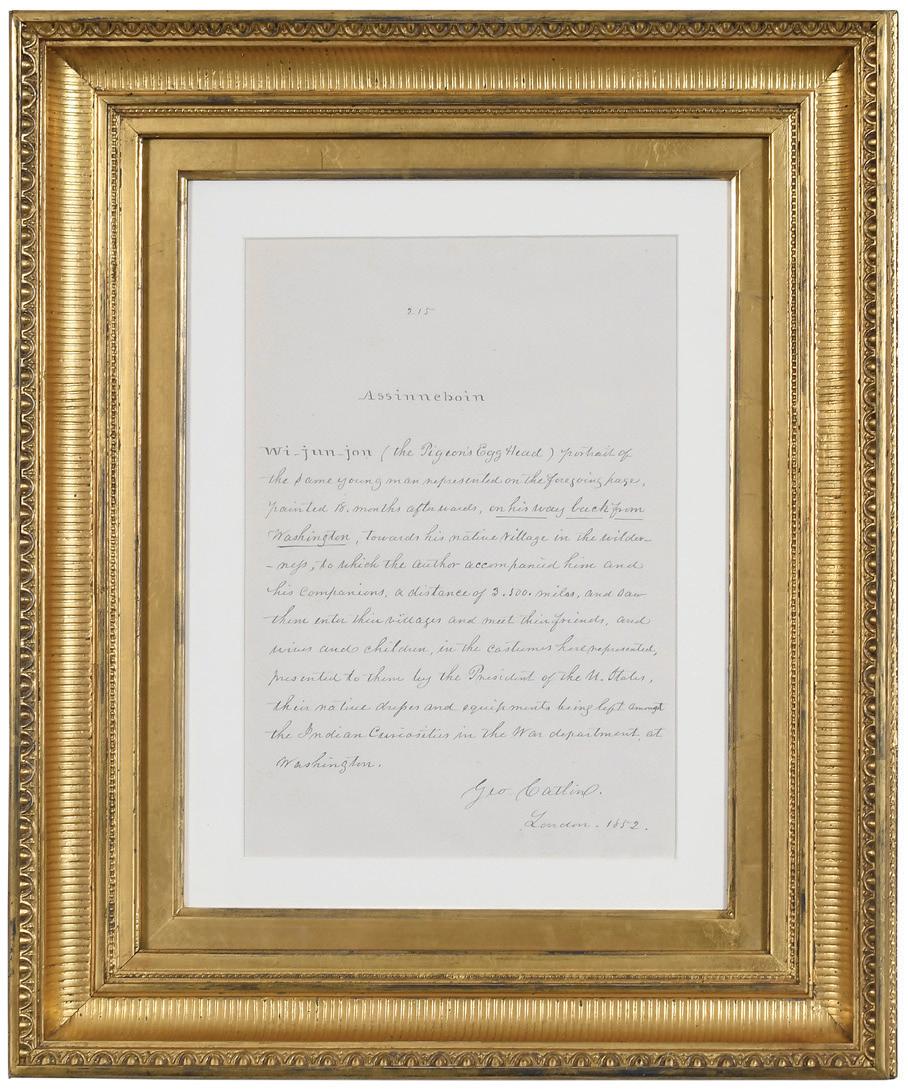 215
Assinneboin
Wi-jun-jon (the Pigeon's Egg Head) portrait of
the same young man represented on the foregoing page,
painted 18. months afterwards, on his way back from
Washington, towards his native village in the wilder-
-ness, to which the author accompanied him and
his companions, a distance of 3.500. miles, and saw
them enter their villages and meet their friends, and
wives and children, in the costumes here represented,
presented to them by the President of the U. States,
their native dresses and equipments being left amongst
the Indian Curiosities in the War department, at
Washington.
Geo Catlin.
London - 1852.